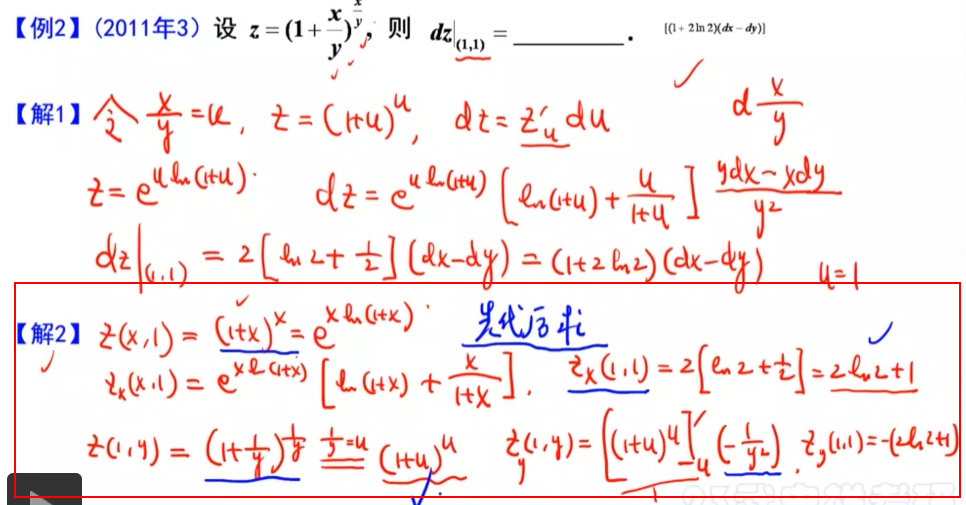 【例2】(2011年3) 设 z = (1 + x/y)^{x/y}, 则 dz|_(1,1) = ________. [(1 + 2 ln 2)(dx - dy)]
【解1】令 x/y = u, z = (1+u)^u, dz = z'_u du ✓ d x/y
z = e^{u ln(1+u)}. dz = e^{u ln(1+u)} [ln(1+u) + u/(1+u)] (ydx - xdy)/y²
dz|_(1,1) = 2[ln 2 + 1/2](dx - dy) = (1 + 2 ln 2)(dx - dy) u = 1
【解2】z(x,1) = (1+x)^x = e^{x ln(1+x)}. 先代后求
z_x(x,1) = e^{x ln(1+x)} [ln(1+x) + x/(1+x)]. z_x(1,1) = 2[ln 2 + 1/2] = 2 ln 2 + 1
z(1,y) = (1 + 1/y)^{1/y} 1/y = u (1+u)^u z_y(1,y) = [(1+u)^u]'_u (-1/y²). z_y(1,1) = -(2 ln 2 + 1)